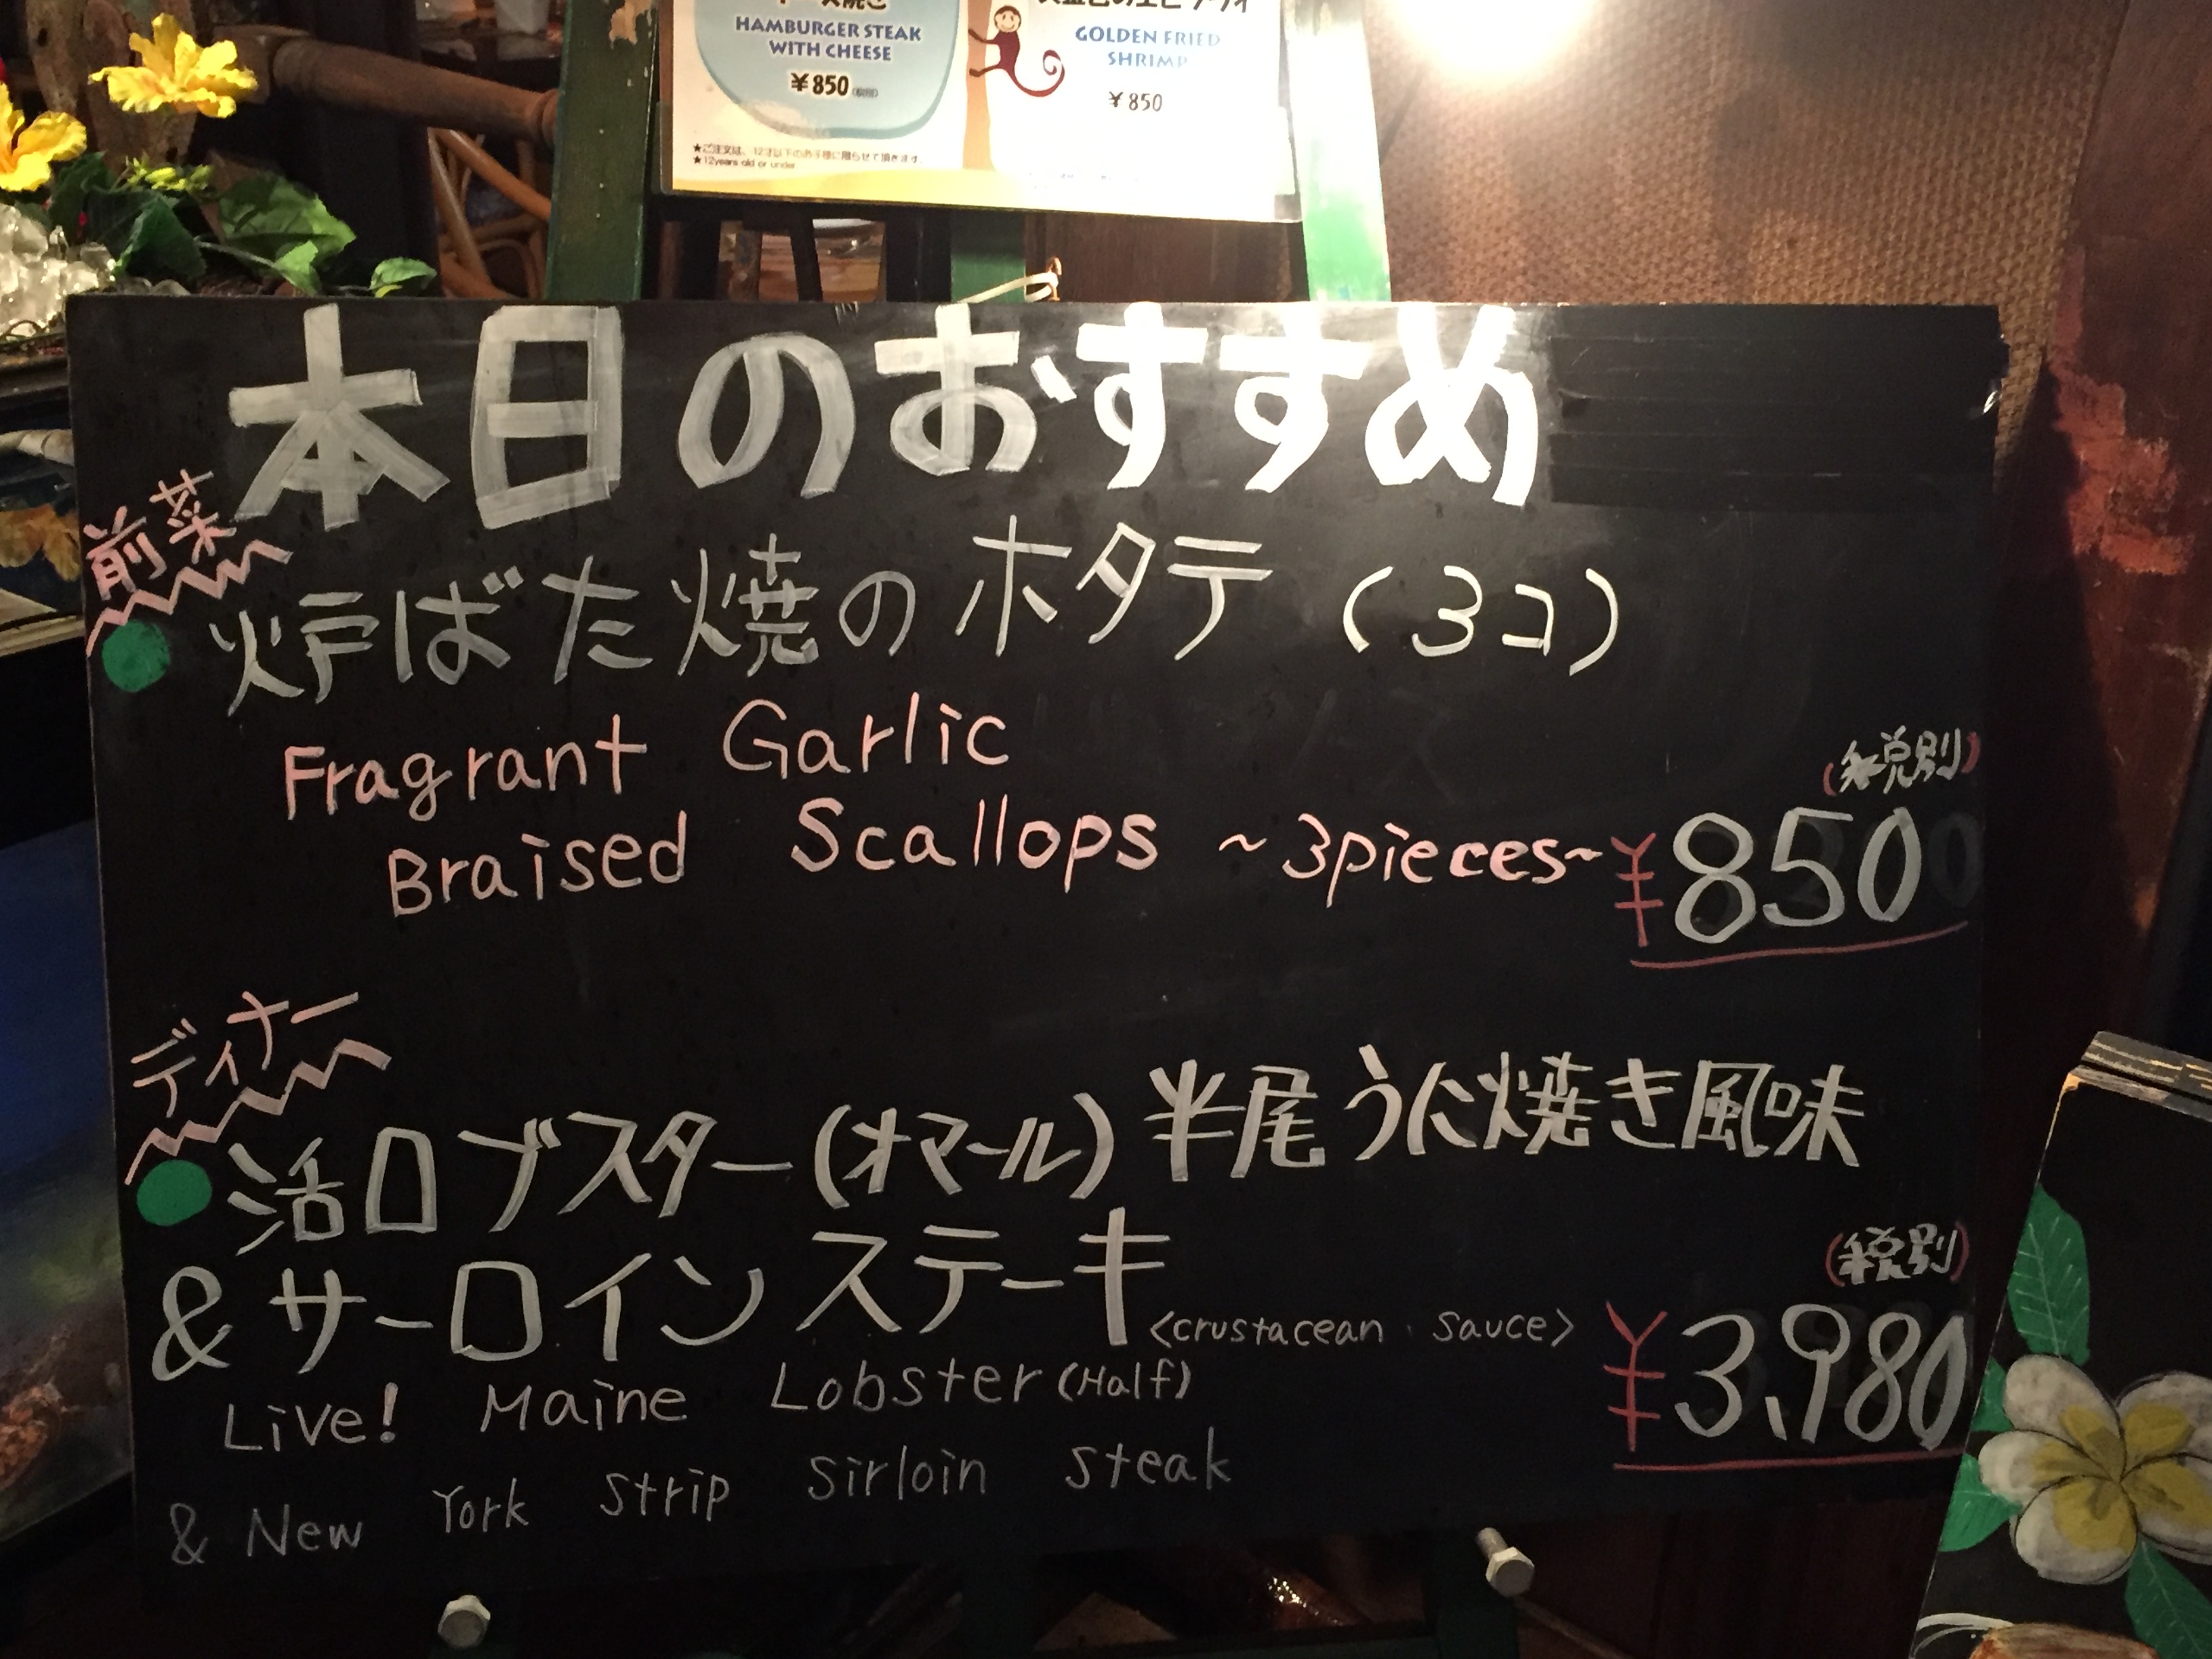 HAMBURGER STEAK
WITH CHEESE
¥850
GOLDEN FRIED
SHRIMP
¥850
★ご注文は、12才以下のお子様に限らせて頂きます。
★12years old or under
本日のおすすめ
前菜
炉ばた焼のホタテ(3コ)
Fragrant Garlic
Braised Scallops ~3pieces~
(税別)
¥850
ディナー
活ロブスター(オマール)半尾うに焼き風味
&サーロインステーキ
<crustacean sauce>
(税別)
¥3,980
Live! Maine Lobster (Half)
& New York Strip Sirloin Steak